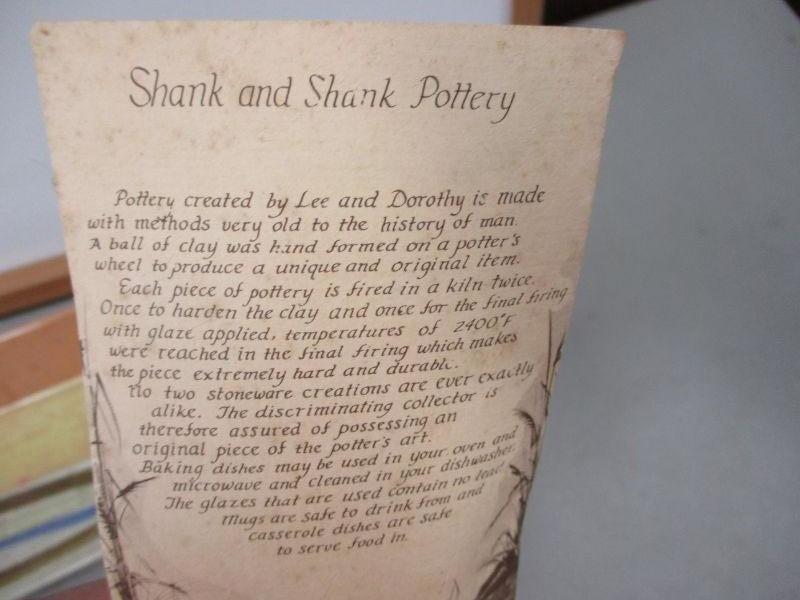 Shank and Shank Pottery
Pottery created by Lee and Dorothy is made
with methods very old to the history of man.
A ball of clay was hand formed on a potter's
wheel to produce a unique and original item.
Each piece of pottery is fired in a kiln twice.
Once to harden the clay and once for the final firing
with glaze applied, temperatures of 2400°F
were reached in the final firing which makes
the piece extremely hard and durable.
No two stoneware creations are ever exactly
alike. The discriminating collector is
therefore assured of possessing an
original piece of the potter's art.
Baking dishes may be used in your oven and
microwave and cleaned in your dishwasher.
The glazes that are used contain no lead
Mugs are safe to drink from and
casserole dishes are safe
to serve food in.